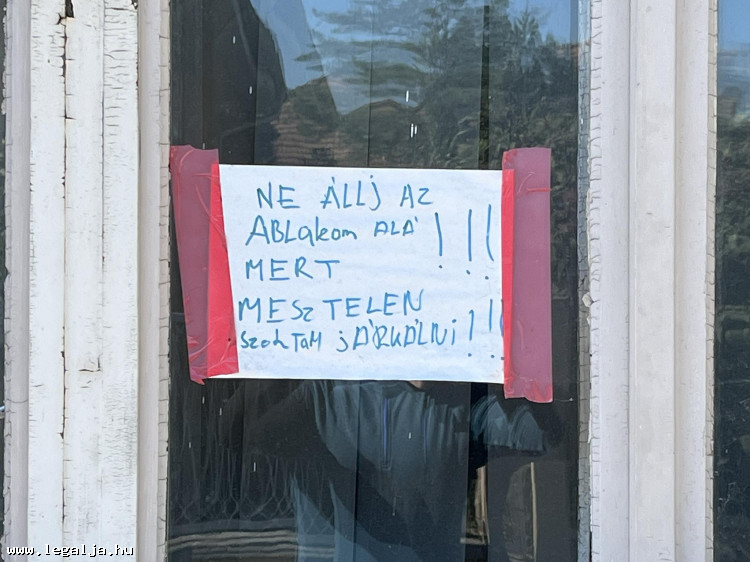 NE ÁLLJ AZ
ABLakom ALÁ !!!
MERT
MESzTELEN
szoktam jÁRKÁLNi !!!
www.legalja.hu